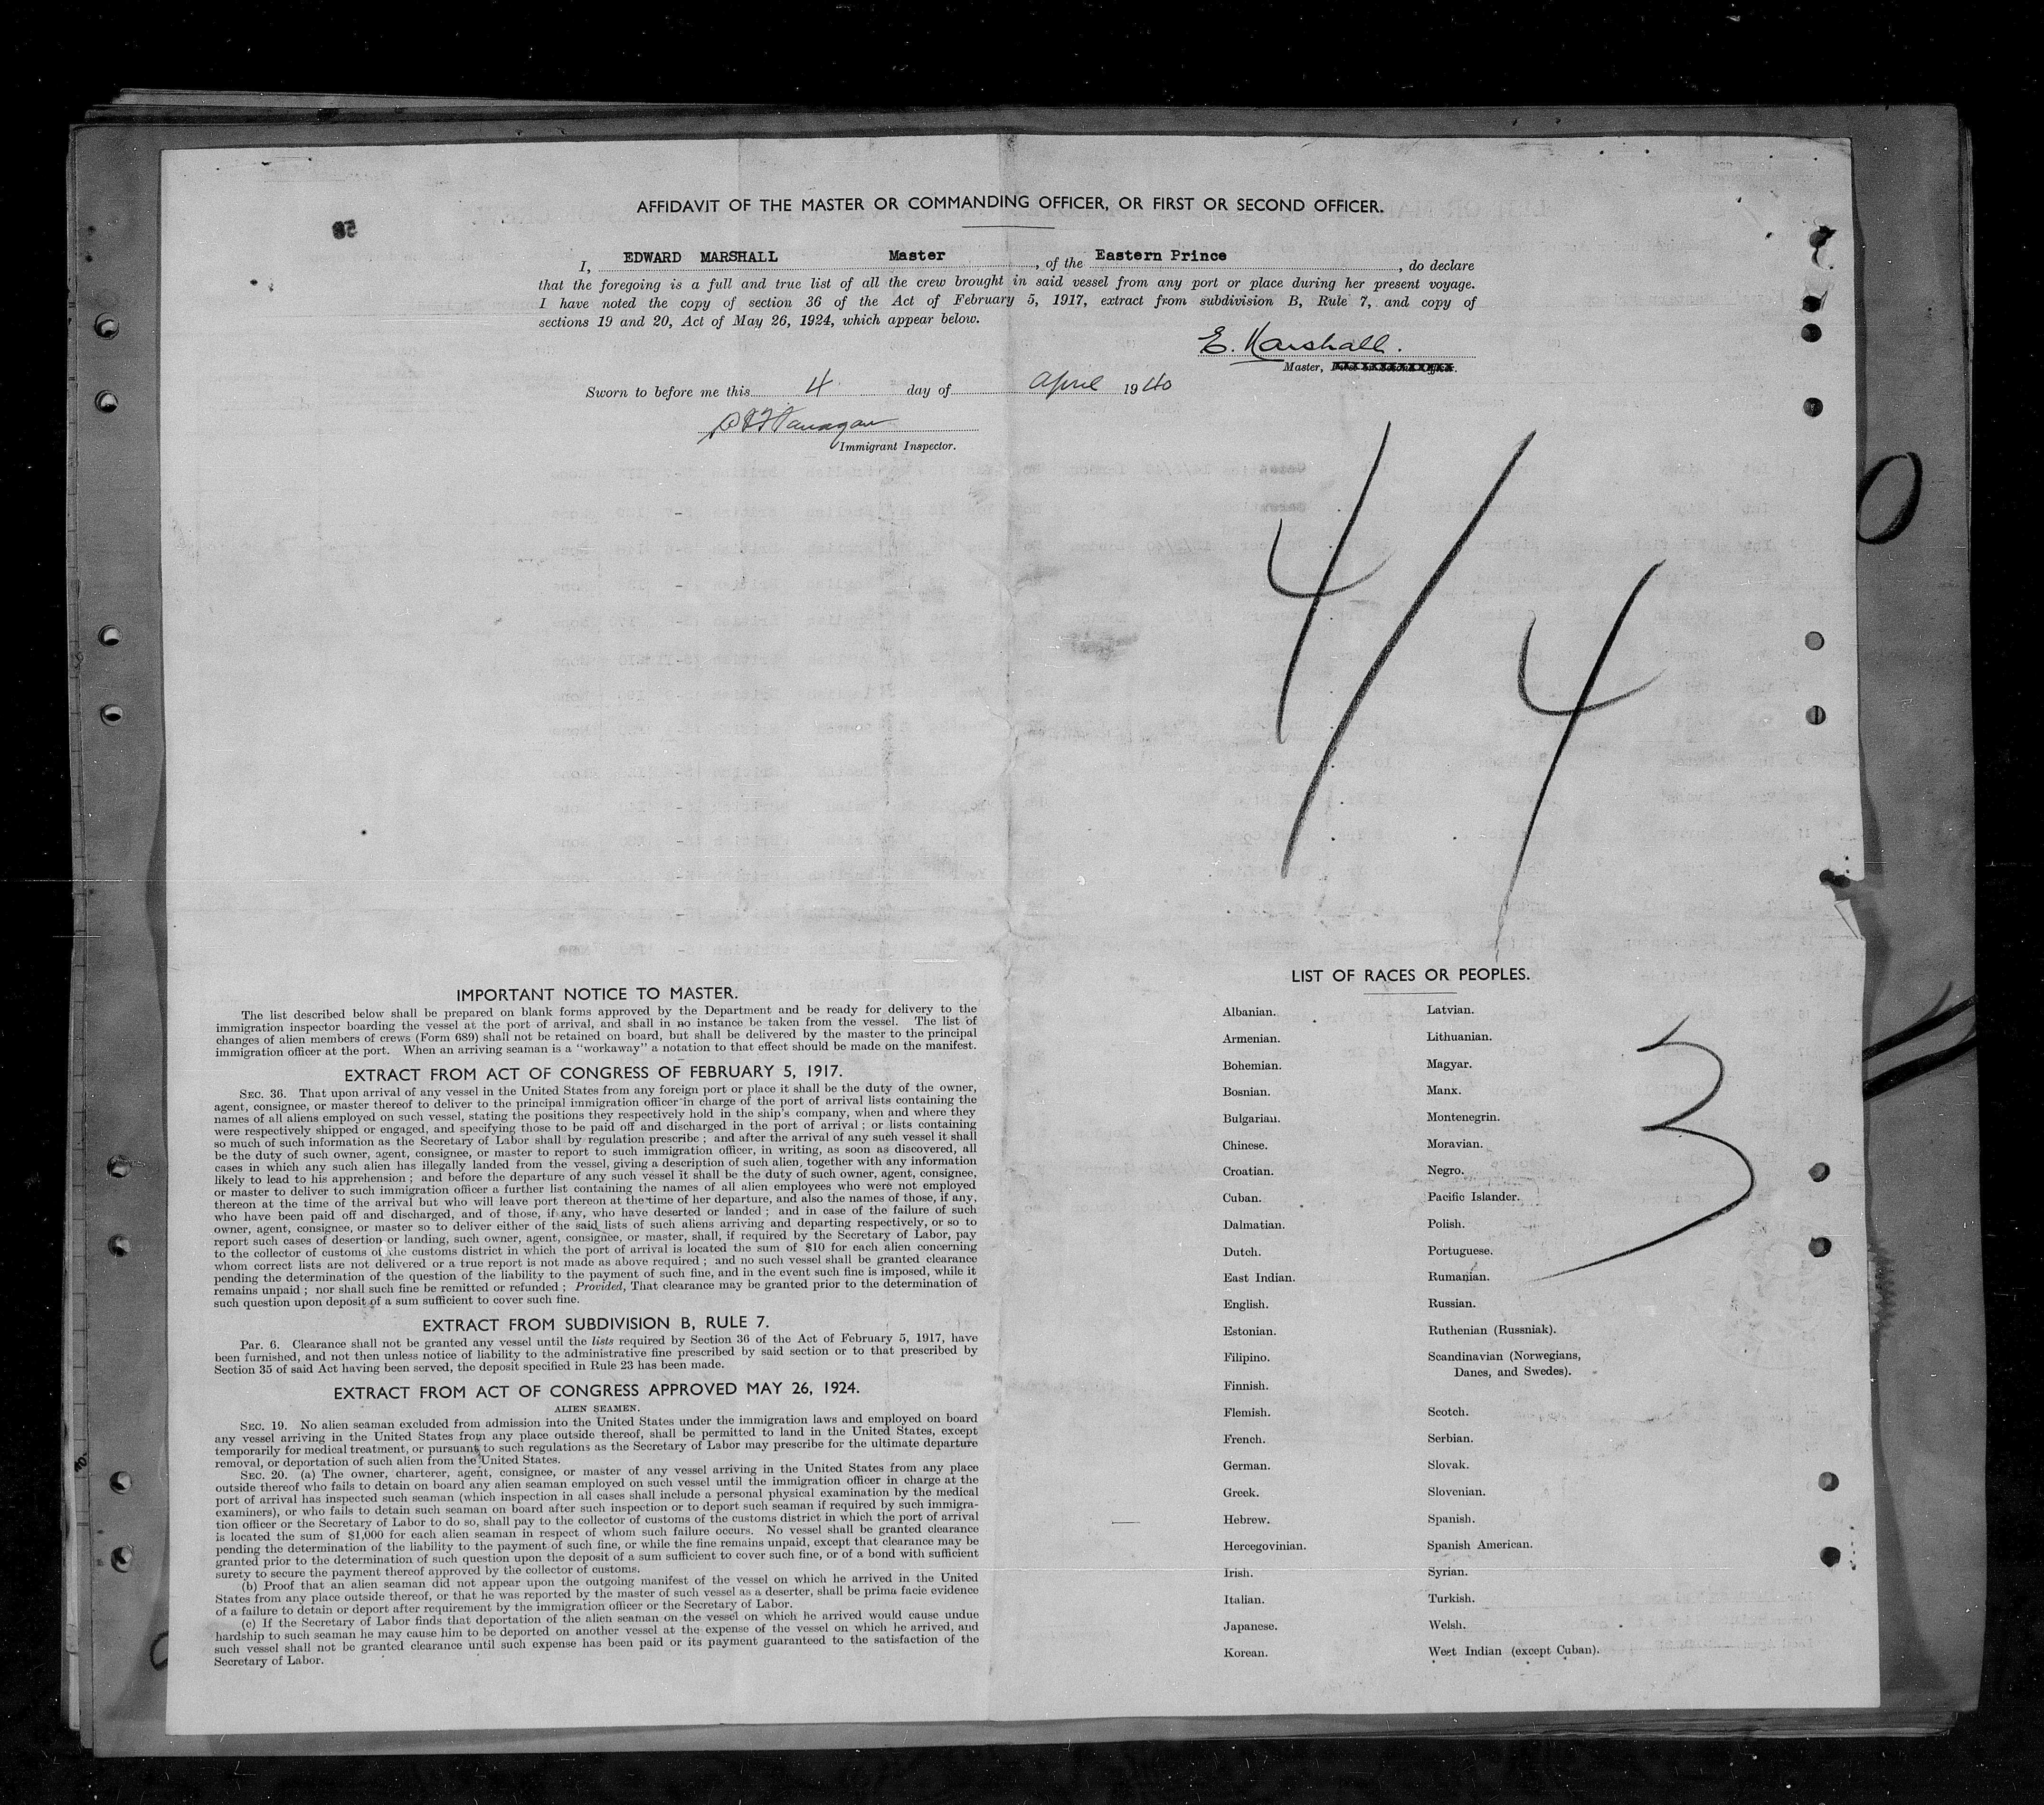 AFFIDAVIT OF THE MASTER OR COMMANDING OFFICER, OR FIRST OR SECOND OFFICER.
58
I, EDWARD MARSHALL Master, of the Eastern Prince, do declare
that the foregoing is a full and true list of all the crew brought in said vessel from any port or place during her present voyage.
I have noted the copy of section 36 of the Act of February 5, 1917, extract from subdivision B, Rule 7, and copy of
sections 19 and 20, Act of May 26, 1924, which appear below.
E. Marshall.
Master,
Sworn to before me this 4 day of April 1940
Flanagan
Immigrant Inspector.
4/4
0
3
IMPORTANT NOTICE TO MASTER.
The list described below shall be prepared on blank forms approved by the Department and be ready for delivery to the
immigration inspector boarding the vessel at the port of arrival, and shall in no instance be taken from the vessel. The list of
changes of alien members of crews (Form 689) shall not be retained on board, but shall be delivered by the master to the principal
immigration officer at the port. When an arriving seaman is a "workaway" a notation to that effect should be made on the manifest.
EXTRACT FROM ACT OF CONGRESS OF FEBRUARY 5, 1917.
SEC. 36. That upon arrival of any vessel in the United States from any foreign port or place it shall be the duty of the owner,
agent, consignee, or master thereof to deliver to the principal immigration officer in charge of the port of arrival lists containing the
names of all aliens employed on such vessel, stating the positions they respectively hold in the ship's company, when and where they
were respectively shipped or engaged, and specifying those to be paid off and discharged in the port of arrival; or lists containing
so much of such information as the Secretary of Labor shall by regulation prescribe; and after the arrival of any such vessel it shall
be the duty of such owner, agent, consignee, or master to report to such immigration officer, in writing, as soon as discovered, all
cases in which any such alien has illegally landed from the vessel, giving a description of such alien, together with any information
likely to lead to his apprehension; and before the departure of any such vessel it shall be the duty of such owner, agent, consignee,
or master to deliver to such immigration officer a further list containing the names of all alien employees who were not employed
thereon at the time of the arrival but who will leave port thereon at the time of her departure, and also the names of those, if any,
who have been paid off and discharged, and of those, if any, who have deserted or landed; and in case of the failure of such
owner, agent, consignee, or master so to deliver either of the said lists of such aliens arriving and departing respectively, or so to
report such cases of desertion or landing, such owner, agent, consignee, or master, shall, if required by the Secretary of Labor, pay
to the collector of customs of the customs district in which the port of arrival is located the sum of $10 for each alien concerning
whom correct lists are not delivered or a true report is not made as above required; and no such vessel shall be granted clearance
pending the determination of the question of the liability to the payment of such fine, and in the event such fine is imposed, while it
remains unpaid; nor shall such fine be remitted or refunded; Provided, That clearance may be granted prior to the determination of
such question upon deposit of a sum sufficient to cover such fine.
EXTRACT FROM SUBDIVISION B, RULE 7.
Par. 6. Clearance shall not be granted any vessel until the lists required by Section 36 of the Act of February 5, 1917, have
been furnished, and not then unless notice of liability to the administrative fine prescribed by said section or to that prescribed by
Section 35 of said Act having been served, the deposit specified in Rule 23 has been made.
EXTRACT FROM ACT OF CONGRESS APPROVED MAY 26, 1924.
ALIEN SEAMEN.
SEC. 19. No alien seaman excluded from admission into the United States under the immigration laws and employed on board
any vessel arriving in the United States from any place outside thereof, shall be permitted to land in the United States, except
temporarily for medical treatment, or pursuant to such regulations as the Secretary of Labor may prescribe for the ultimate departure
removal, or deportation of such alien from the United States.
SEC. 20. (a) The owner, charterer, agent, consignee, or master of any vessel arriving in the United States from any place
outside thereof who fails to detain on board any alien seaman employed on such vessel until the immigration officer in charge at the
port of arrival has inspected such seaman (which inspection in all cases shall include a personal physical examination by the medical
examiners), or who fails to detain such seaman on board after such inspection or to deport such seaman if required by such immigra-
tion officer or the Secretary of Labor to do so, shall pay to the collector of customs of the customs district in which the port of arrival
is located the sum of $1,000 for each alien seaman in respect of whom such failure occurs. No vessel shall be granted clearance
pending the determination of the liability to the payment of such fine, or while the fine remains unpaid, except that clearance may be
granted prior to the determination of such question upon the deposit of a sum sufficient to cover such fine, or of a bond with sufficient
surety to secure the payment thereof approved by the collector of customs.
(b) Proof that an alien seaman did not appear upon the outgoing manifest of the vessel on which he arrived in the United
States from any place outside thereof, or that he was reported by the master of such vessel as a deserter, shall be prima facie evidence
of a failure to detain or deport after requirement by the immigration officer or the Secretary of Labor.
(c) If the Secretary of Labor finds that deportation of the alien seaman on the vessel on which he arrived would cause undue
hardship to such seaman he may cause him to be deported on another vessel at the expense of the vessel on which he arrived, and
such vessel shall not be granted clearance until such expense has been paid or its payment guaranteed to the satisfaction of the
Secretary of Labor.
LIST OF RACES OR PEOPLES.
Albanian.
Armenian.
Bohemian.
Bosnian.
Bulgarian.
Chinese.
Croatian.
Cuban.
Dalmatian.
Dutch.
East Indian.
English.
Estonian.
Filipino.
Finnish.
Flemish.
French.
German.
Greek.
Hebrew.
Hercegovinian.
Irish.
Italian.
Japanese.
Korean.
Latvian.
Lithuanian.
Magyar.
Manx.
Montenegrin.
Moravian.
Negro.
Pacific Islander.
Polish.
Portuguese.
Rumanian.
Russian.
Ruthenian (Russniak).
Scandinavian (Norwegians,
Danes, and Swedes).
Scotch.
Serbian.
Slovak.
Slovenian.
Spanish.
Spanish American.
Syrian.
Turkish.
Welsh.
West Indian (except Cuban).